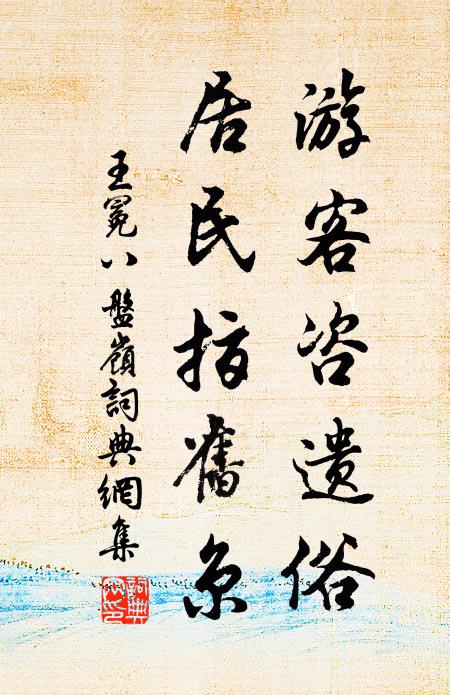 游客咨遺俗
居民指舊京
王冕八盤嶺詞典網集